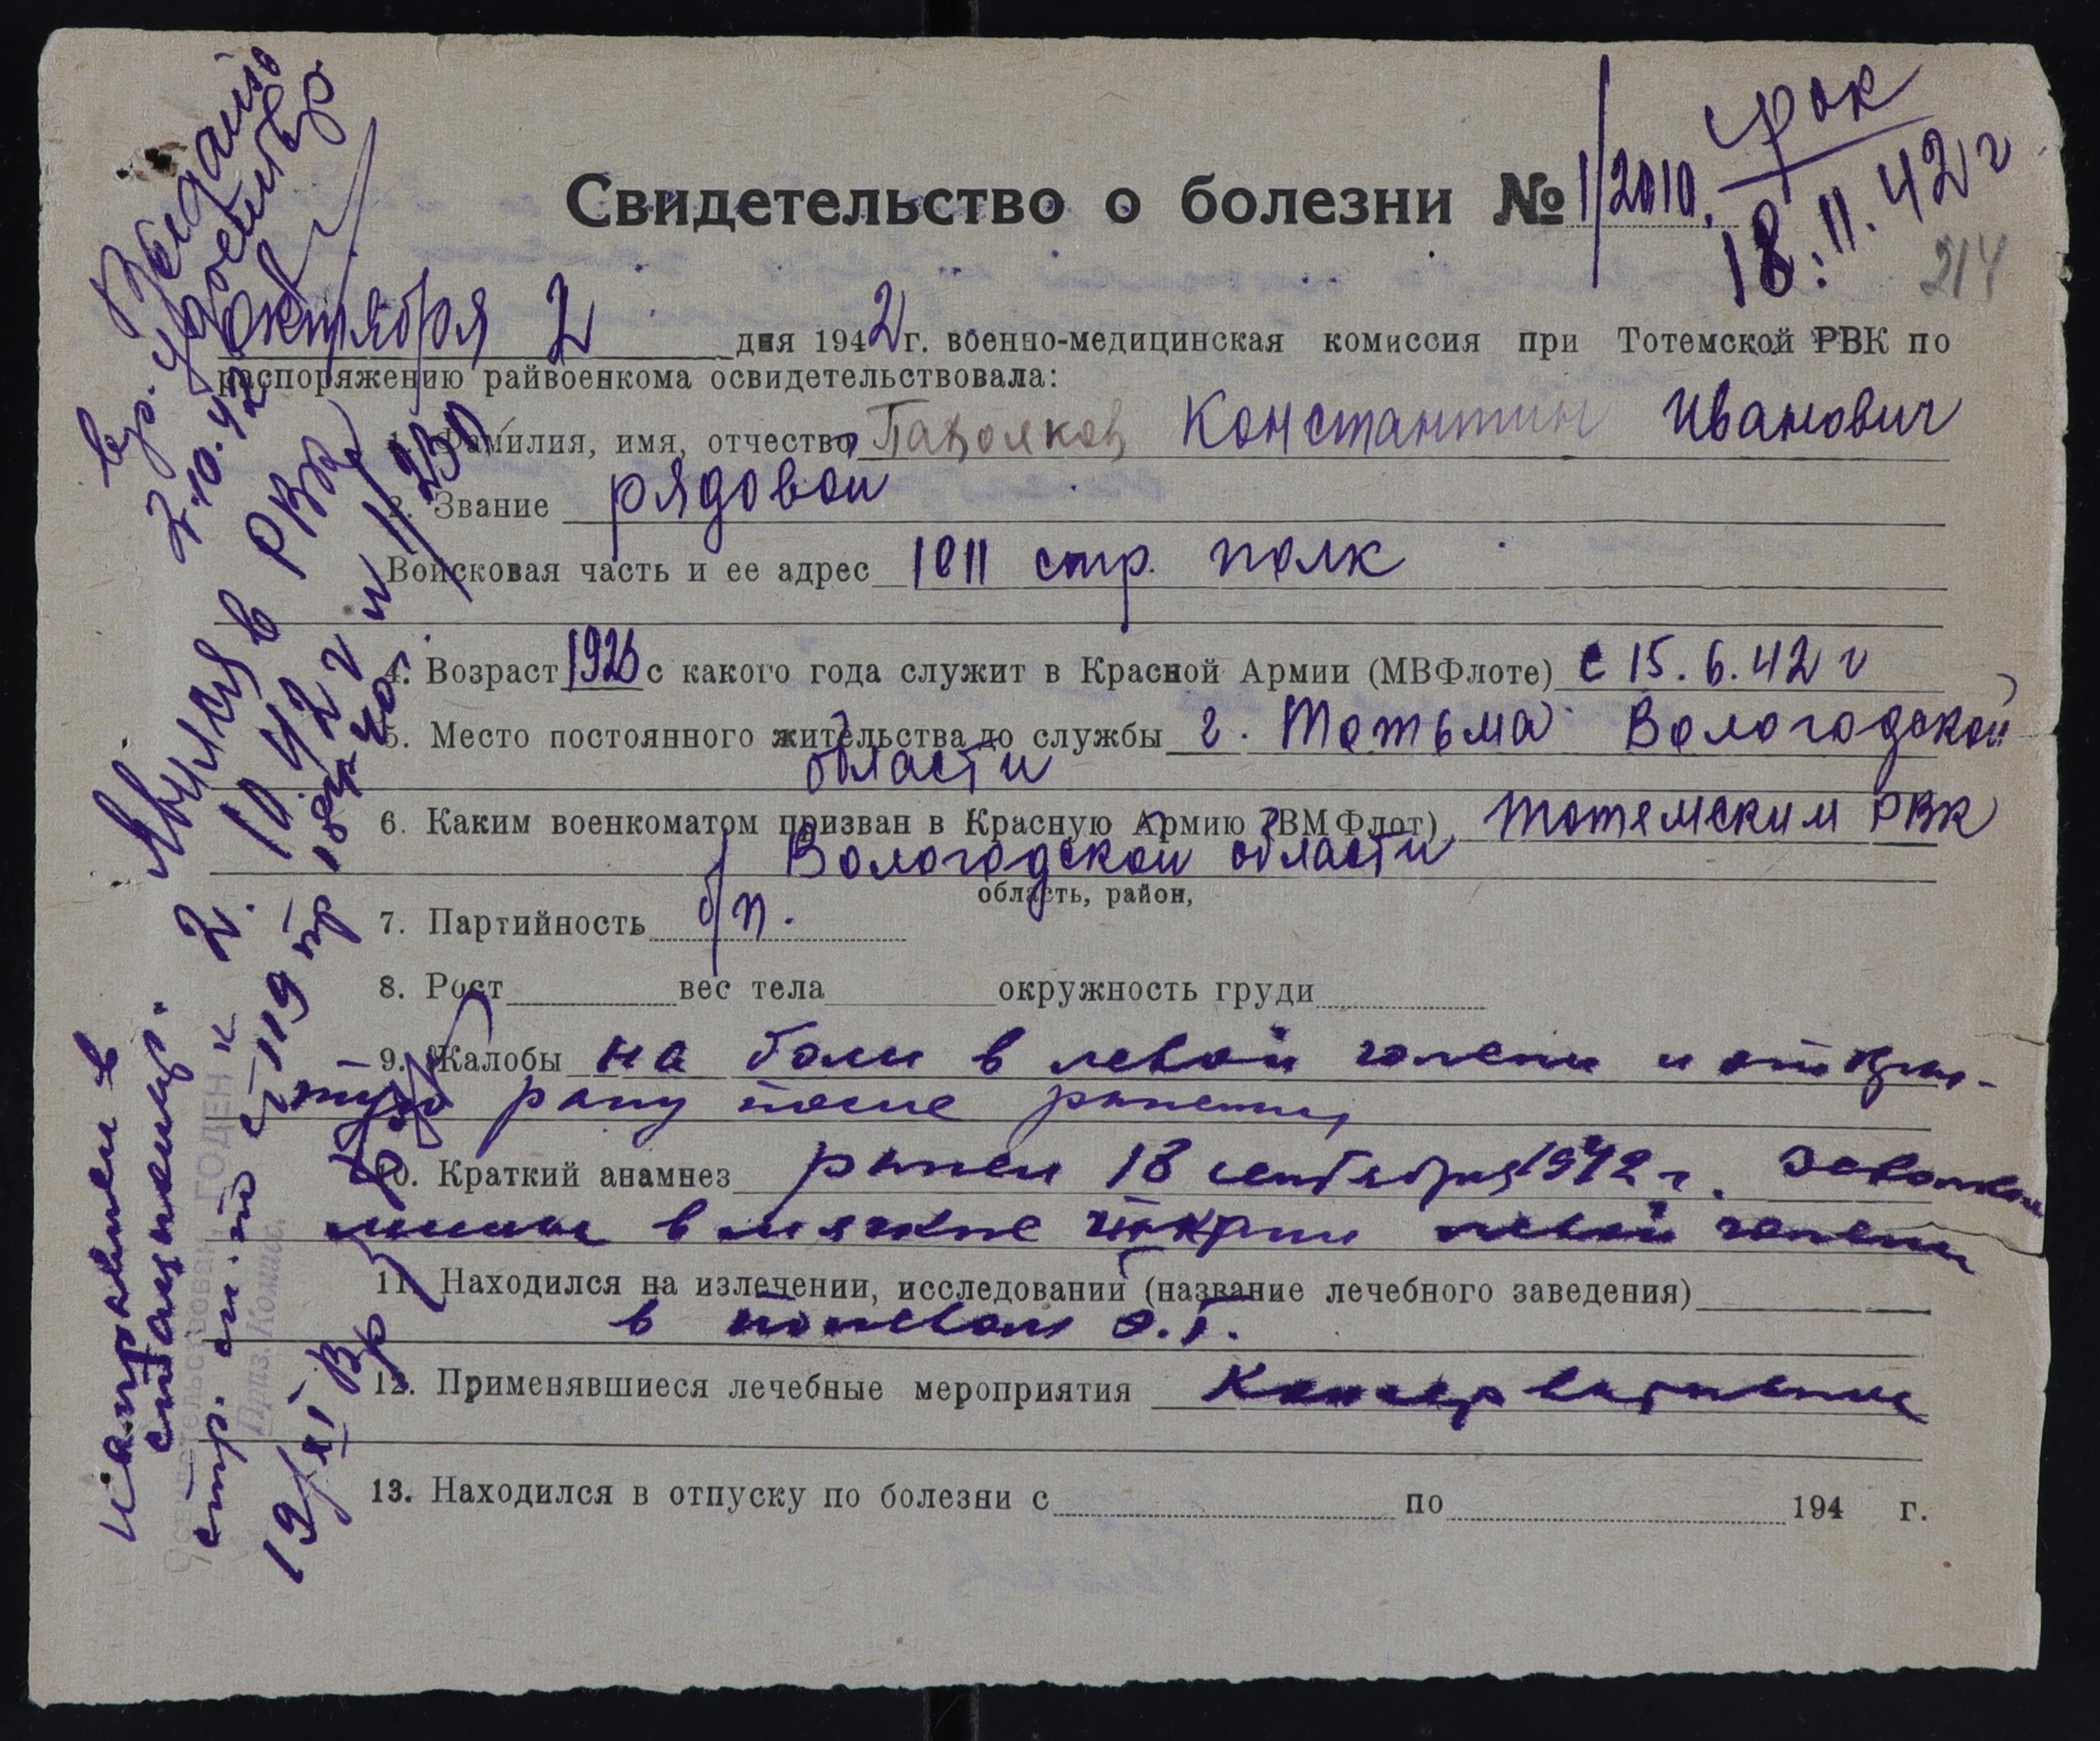 Свидетельство о болезни № 1/2010.
срок
18.11.42 г
214
октября 2 дня 1942 г. военно-медицинская комиссия при Тотемской РВК по
распоряжению райвоенкома освидетельствовала:
1. Фамилия, имя, отчество Константин Иванович
2. Звание рядовой
Войсковая часть и ее адрес 1011 стр. полк
4. Возраст с какого года служит в Красной Армии (МВФлоте) с 15.6.42 г
5. Место постоянного жительства до службы г. Тотьма Вологодской
области
6. Каким военкоматом призван в Красную Армию (ВМФлот) Тотемским РВК
Вологодской области
область, район,
7. Партийность б/п.
8. Рост вес тела окружность груди
9. Жалобы на боли в левой голени и откры-
тую рану после ранения
10. Краткий анамнез ранен 18 сентября 1942 г. осколком
мины в мягкие ткани левой голени
11. Находился на излечении, исследовании (название лечебного заведения)
в Э.Г.
12. Применявшиеся лечебные мероприятия Консервативные
13. Находился в отпуску по болезни с по 194 г.
Выдано
вр. удостовер
2.10.42
Явился в РВК
2. 10 42 г и 11/230
направлен в
стационар.
ГОДЕН к
стр. по ст 119 пр 336
Приз. Комис.
19/XI Вр